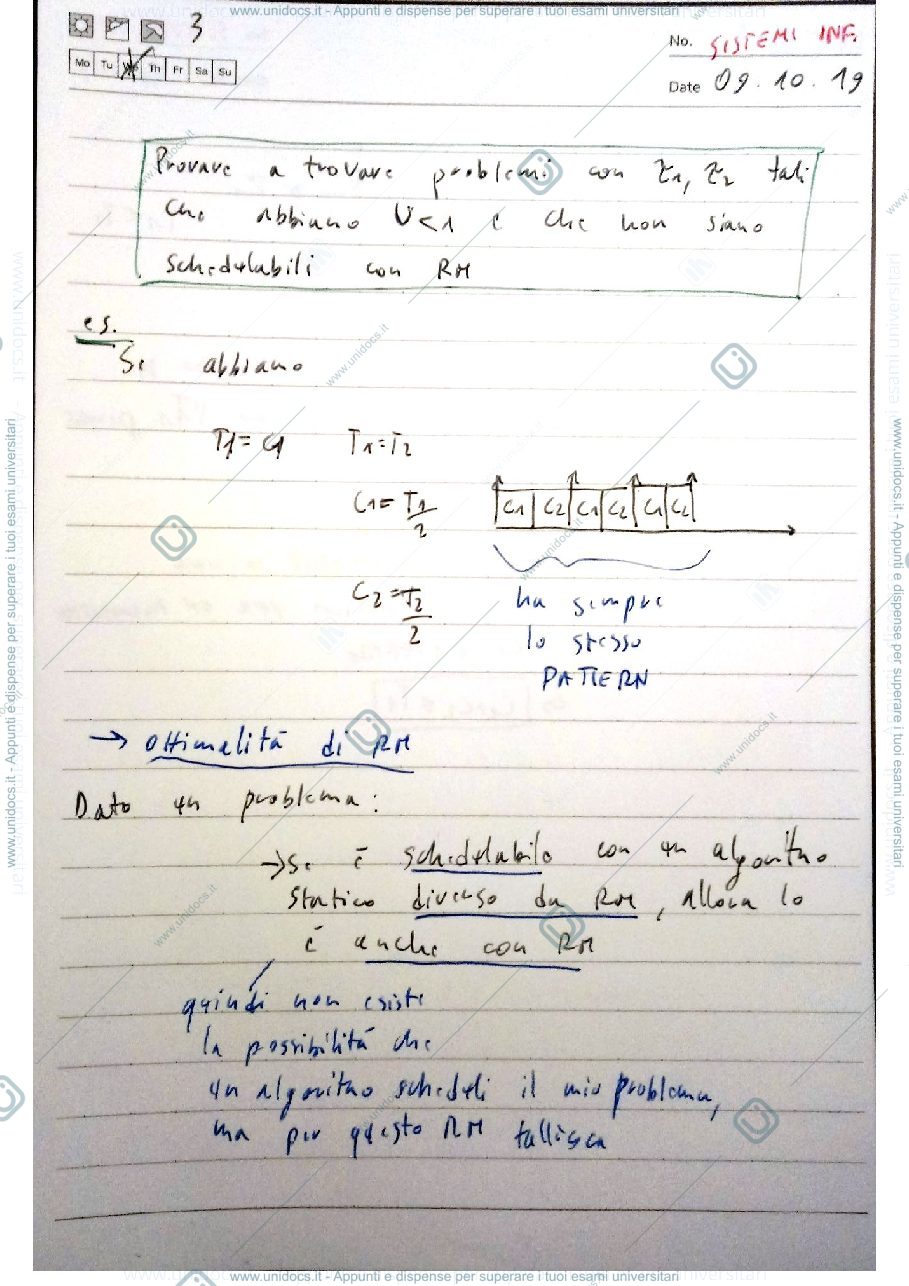 www.unidocs.it - Appunti e dispense per superare i tuoi esami universitari
3
No. SISTEMI INF.
Mo Tu We Th Fr Sa Su
Date 09.10.19
Provare a trovare problemi con τ1, τ2 tali
che abbiano U<1 e che non siano
schedulabili con RM
es.
Se abbiamo
T1 = C1 T1 = T2
C1 = T1/2
C1 C2 C1 C2 C1 C2
C2 = T2/2
ha sempre
lo stesso
PATTERN
→ Ottimalità di RM
Dato un problema:
→ Se è schedulabile con un algoritmo
statico diverso da RM, allora lo
è anche con RM
quindi non esiste
la possibilità che
un algoritmo scheduli il mio problema,
ma per questo RM fallisca
www.unidocs.it - Appunti e dispense per superare i tuoi esami universitari
www.unidocs.it - Appunti e dispense per superare i tuoi esami universitari
www.unidocs.it - Appunti e dispense per superare i tuoi esami universitari
www.unidocs.it
www.unidocs.it
www.unidocs.it
www.unidocs.it
www.unidocs.it